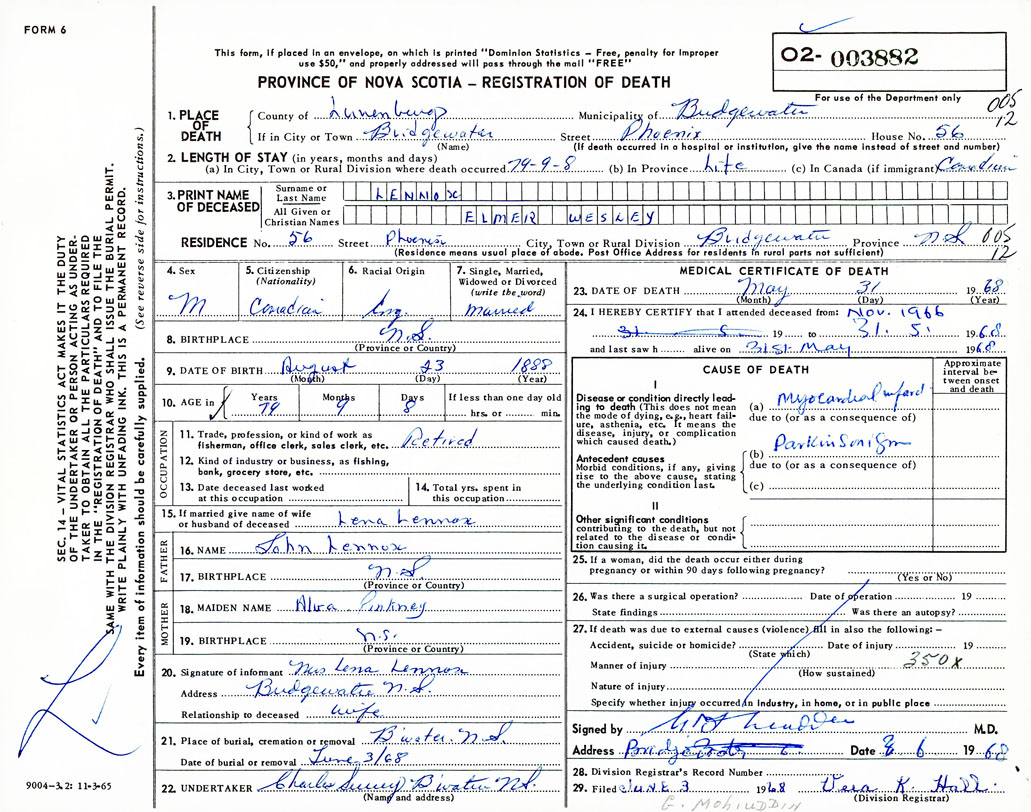 FORM 6
This form, if placed in an envelope, on which is printed "Dominion Statistics – Free, penalty for improper
use $50," and properly addressed will pass through the mail "FREE"
PROVINCE OF NOVA SCOTIA – REGISTRATION OF DEATH
O2- 003882
For use of the Department only
005
12
1. PLACE OF DEATH
County of Lunenburg Municipality of Bridgewater
If in City or Town Bridgewater Street Phoenix House No. 56
(Name) (If death occurred in a hospital or institution, give the name instead of street and number)
2. LENGTH OF STAY (in years, months and days)
(a) In City, Town or Rural Division where death occurred 79-9-8 (b) In Province Life (c) In Canada (if immigrant) Canadian
3. PRINT NAME OF DECEASED
Surname or Last Name LENNOX
All Given or Christian Names ELMER WESLEY
RESIDENCE No. 56 Street Phoenix City, Town or Rural Division Bridgewater Province N.S. 005
12
(Residence means usual place of abode. Post Office Address for residents in rural parts not sufficient)
4. Sex
M
5. Citizenship
(Nationality)
Canadian
6. Racial Origin
Eng.
7. Single, Married,
Widowed or Divorced
(write the word)
Married
8. BIRTHPLACE N.S.
(Province or Country)
9. DATE OF BIRTH August 23 1888
(Month) (Day) (Year)
10. AGE in Years Months Days If less than one day old
79 9 8 hrs. or min.
OCCUPATION
11. Trade, profession, or kind of work as
fisherman, office clerk, sales clerk, etc. Retired
12. Kind of industry or business, as fishing,
bank, grocery store, etc.
13. Date deceased last worked
at this occupation
14. Total yrs. spent in
this occupation
15. If married give name of wife
or husband of deceased Lena Lennox
FATHER
16. NAME John Lennox
17. BIRTHPLACE N.S.
(Province or Country)
MOTHER
18. MAIDEN NAME Alva Pinkney
19. BIRTHPLACE N.S.
(Province or Country)
20. Signature of informant Mrs Lena Lennox
Address Bridgewater N.S.
Relationship to deceased wife
21. Place of burial, cremation or removal B'water. N.S.
Date of burial or removal June 3/68
22. UNDERTAKER Charles B'water N.S.
(Name and address)
MEDICAL CERTIFICATE OF DEATH
23. DATE OF DEATH May 31 1968
(Month) (Day) (Year)
24. I HEREBY CERTIFY that I attended deceased from: Nov. 1966
31. 5 19 to 31. 5. 1968
and last saw h alive on 31st. May 1968
CAUSE OF DEATH
Approximate
interval be-
tween onset
and death
I
Disease or condition directly lead-
ing to death (This does not mean
the mode of dying, e.g., heart fail-
ure, asthenia, etc. It means the
disease, injury, or complication
which caused death.)
(a) Myocardial infarct
due to (or as a consequence of)
Parkinsonism
Antecedent causes
Morbid conditions, if any, giving
rise to the above cause, stating
the underlying condition last.
(b)
due to (or as a consequence of)
(c)
II
Other significant conditions
contributing to the death, but not
related to the disease or condi-
tion causing it.
25. If a woman, did the death occur either during
pregnancy or within 90 days following pregnancy?
(Yes or No)
26. Was there a surgical operation? Date of operation 19
State findings Was there an autopsy?
27. If death was due to external causes (violence) fill in also the following: –
Accident, suicide or homicide? Date of injury 19
(State which)
Manner of injury 350X
(How sustained)
Nature of injury
Specify whether injury occurred in Industry, in home, or in public place
Signed by M.D.
Address Date 3 6 1968
28. Division Registrar's Record Number
29. Filed JUNE 3 1968 Vera K. Hall
(Division Registrar)
E. MOHIUDDIN
SEC. 14 – VITAL STATISTICS ACT MAKES IT THE DUTY
OF THE UNDERTAKER OR PERSON ACTING AS UNDER-
TAKER TO OBTAIN ALL THE PARTICULARS REQUIRED
IN THE "REGISTRATION OF DEATH" AND TO FILE THE
SAME WITH THE DIVISION REGISTRAR WHO SHALL ISSUE THE BURIAL PERMIT.
WRITE PLAINLY WITH UNFADING INK. THIS IS A PERMANENT RECORD.
Every item of information should be carefully supplied. (See reverse side for instructions.)
9004-3.2: 11-3-65